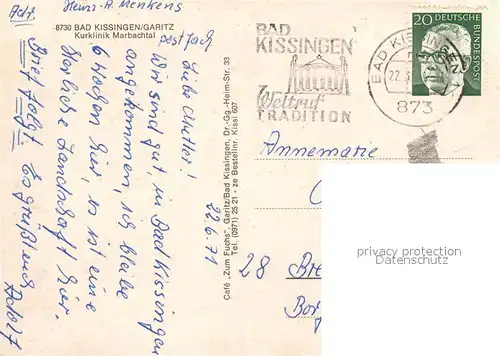 Adr. Heinz-A. Menkens
postfach
8730 BAD KISSINGEN/GARITZ
Kurklinik Marbachtal
Liebe Mutter!
Wir sind gut, in Bad Kissingen
angekommen, ich bleibe
6 Wochen hier, es ist eine
Herrliche Landschaft hier.
Brief folgt. Es grüßt euch
Adolf
22.6.71
Café „Zum Fuchs", Garitz/Bad Kissingen, Dr.-Gg.-Heim-Str. 33
Tel. (0971) 25 21 - ze Bestellnr. Kissi 607
BAD
KISSINGEN
Weltruf
TRADITION
BAD KISSINGEN
22.
873
20 DEUTSCHE
BUNDESPOST
Annemarie
28 Bre
Bor
privacy protection
personal rights